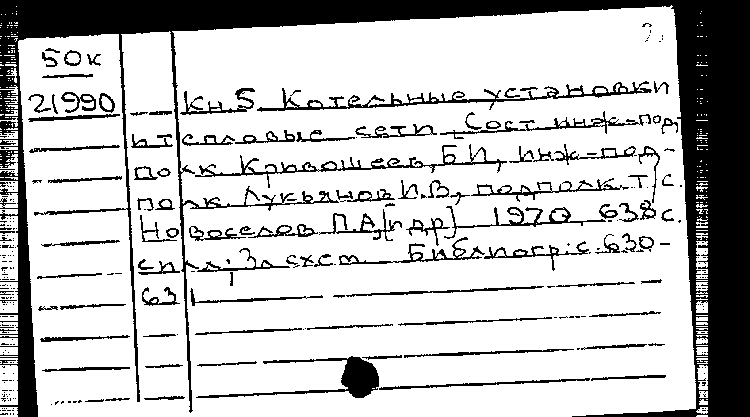 50к
21990
Кн.5. Котельные установки
и тепловые сети. Сост. инж-под-
полк. Кривошеев, Б И, инж-под-
полк. Лукьянов И.В, подполк. т/с.
Новоселов П.А, [и др] 1970, 638 с.
с ил; 3л схем. Библиогр: с. 630-
631